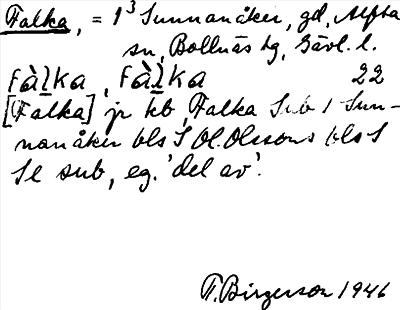 Falka, = 1³ Sunnanåker, gd, Alfta
sn, Bollnäs tg, Gävl. l.
fàlka, fàlka 22
[Falka] jr kb, Falka Sub 1 Sun-
nanåker bls S Ol. Olssons bls S
Se sub, eg. 'del av'.
T. Birgerson 1946